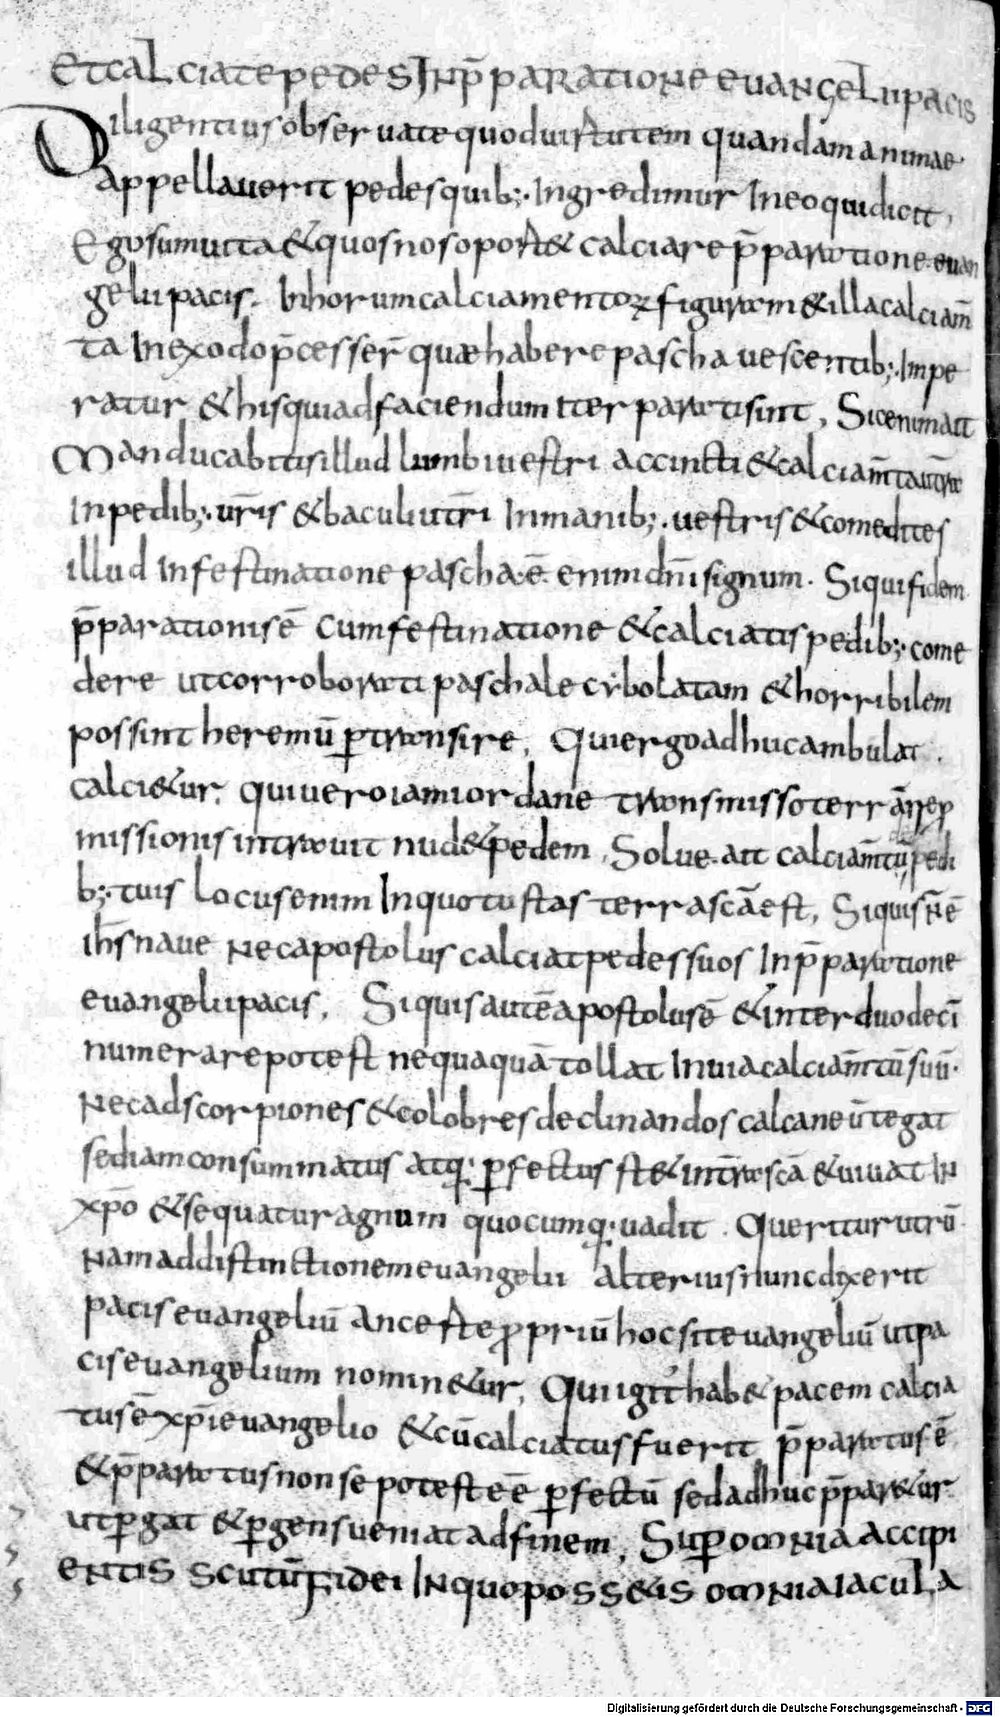 Et calciate pedes In p̄paratione euangelii pacis
Diligentius obseruate quod uirtutem quandam animae
appellauerit pedes quib; Ingredimur In eo qui dicit,
Ego sum uita & quos nos oport& calciare p̄paratione euan
gelii pacis. In horum calciamentoꝝ figuram & illa calciam̄
ta In exodo p̄cesser̄ quæ habere pascha uescentib; Impe
ratur & his qui ad faciendum Iter parati sint, Sic enim ait
Manducabitis illud lumbi uestri accincti & calciam̄ta
In pedib; ur̄is & baculi utr̄i In manib; uestris & comedites
illud In festinatione pascha ē enim dn̄i signum. Siquifidem
p̄parationis ē cum festinatione & calciatis pedib; come
dere ut corroborati paschale cybo latam & horribilem
possint heremū ꝑtransire, Qui ergo adhuc ambulat.
calci&ur, qui uero iam iordane transmisso terrā rep̱
missionis intrauit nud& pedem, Solue ait calciam̄tū pedi
b; tuis locus enim In quo tu stas terra sc̄a est, Siquis n̄ ē
ih̄s naue nec apostolus calciat pedes suos In p̄paratione
euangelii pacis, Siquis autē apostolus ē & inter duodecī
numerare potest nequaquā tollat In uia calciam̄tū suū.
Nec ad scorpiones & colobres declinandos calcaneū tegat
sed iam consummatus atq; ꝑfectus st& in tr̄a sc̄a & uiuat In
xp̄o & sequatur agnum quocumq; uadit. Queritur utrū
nam ad distinctionem euangelii alterius nunc dixerit
pacis euangeliū an certe ꝓpriū hoc sit euangeliū ut pa
cis euangelium nomin&ur, Qui igit̄ hab& pacem calcia
tus ē xp̄i euangelio & cū calciatus fuerit p̄paratus ē
& p̄paratus non se potest eē ꝑfectū sed adhuc p̄par&ur
ut ꝑgat & ꝑgens ueniat ad finem, Suꝑ omnia accipi
entis scutū fidei In quo poss&is omnia Iacula
Digitalisierung gefördert durch die Deutsche Forschungsgemeinschaft - DFG